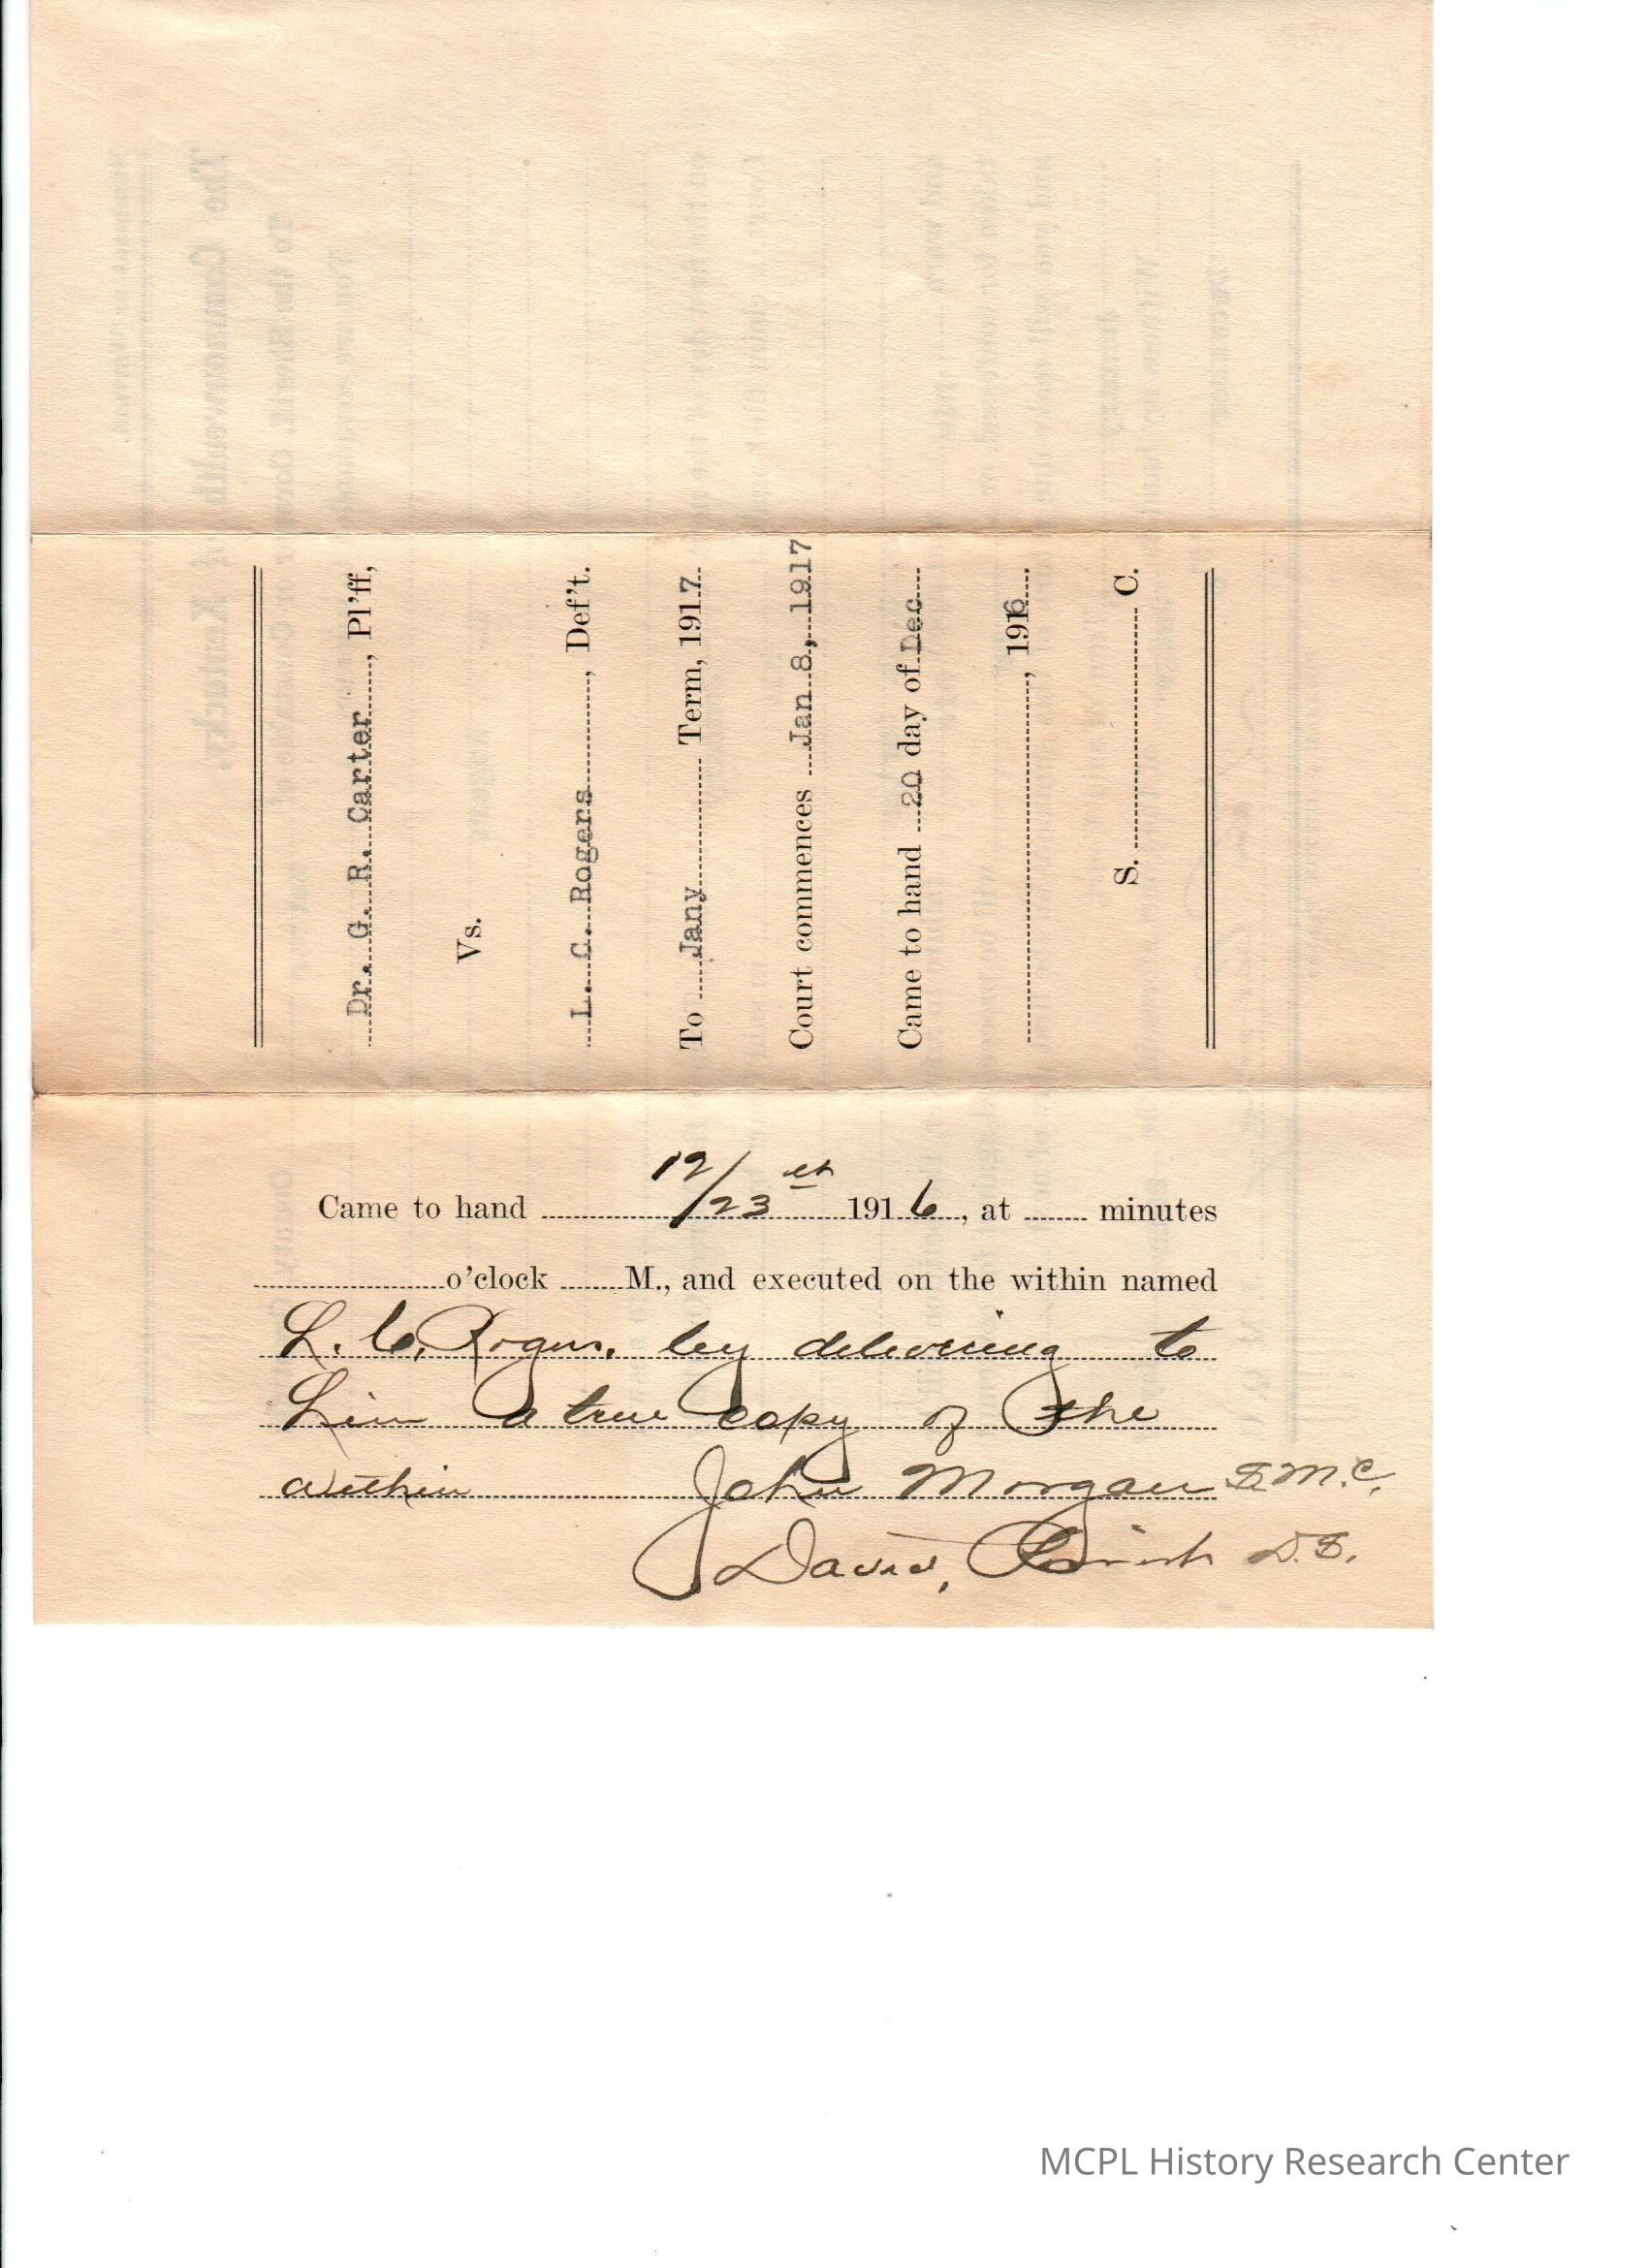 Dr. G. R. Carter, Pl'ff,
Vs.
L. C. Rogers, Def't.
To Jany Term, 1917.
Court commences Jan 8, 1917
Came to hand 20 day of Dec
, 1916.
S. C.
Came to hand 12/23 1916, at minutes
o'clock M., and executed on the within named
L. C. Rogers. by delivering to
him a true copy of the
within John Morgan S.M.C.
David, D.S.
MCPL History Research Center